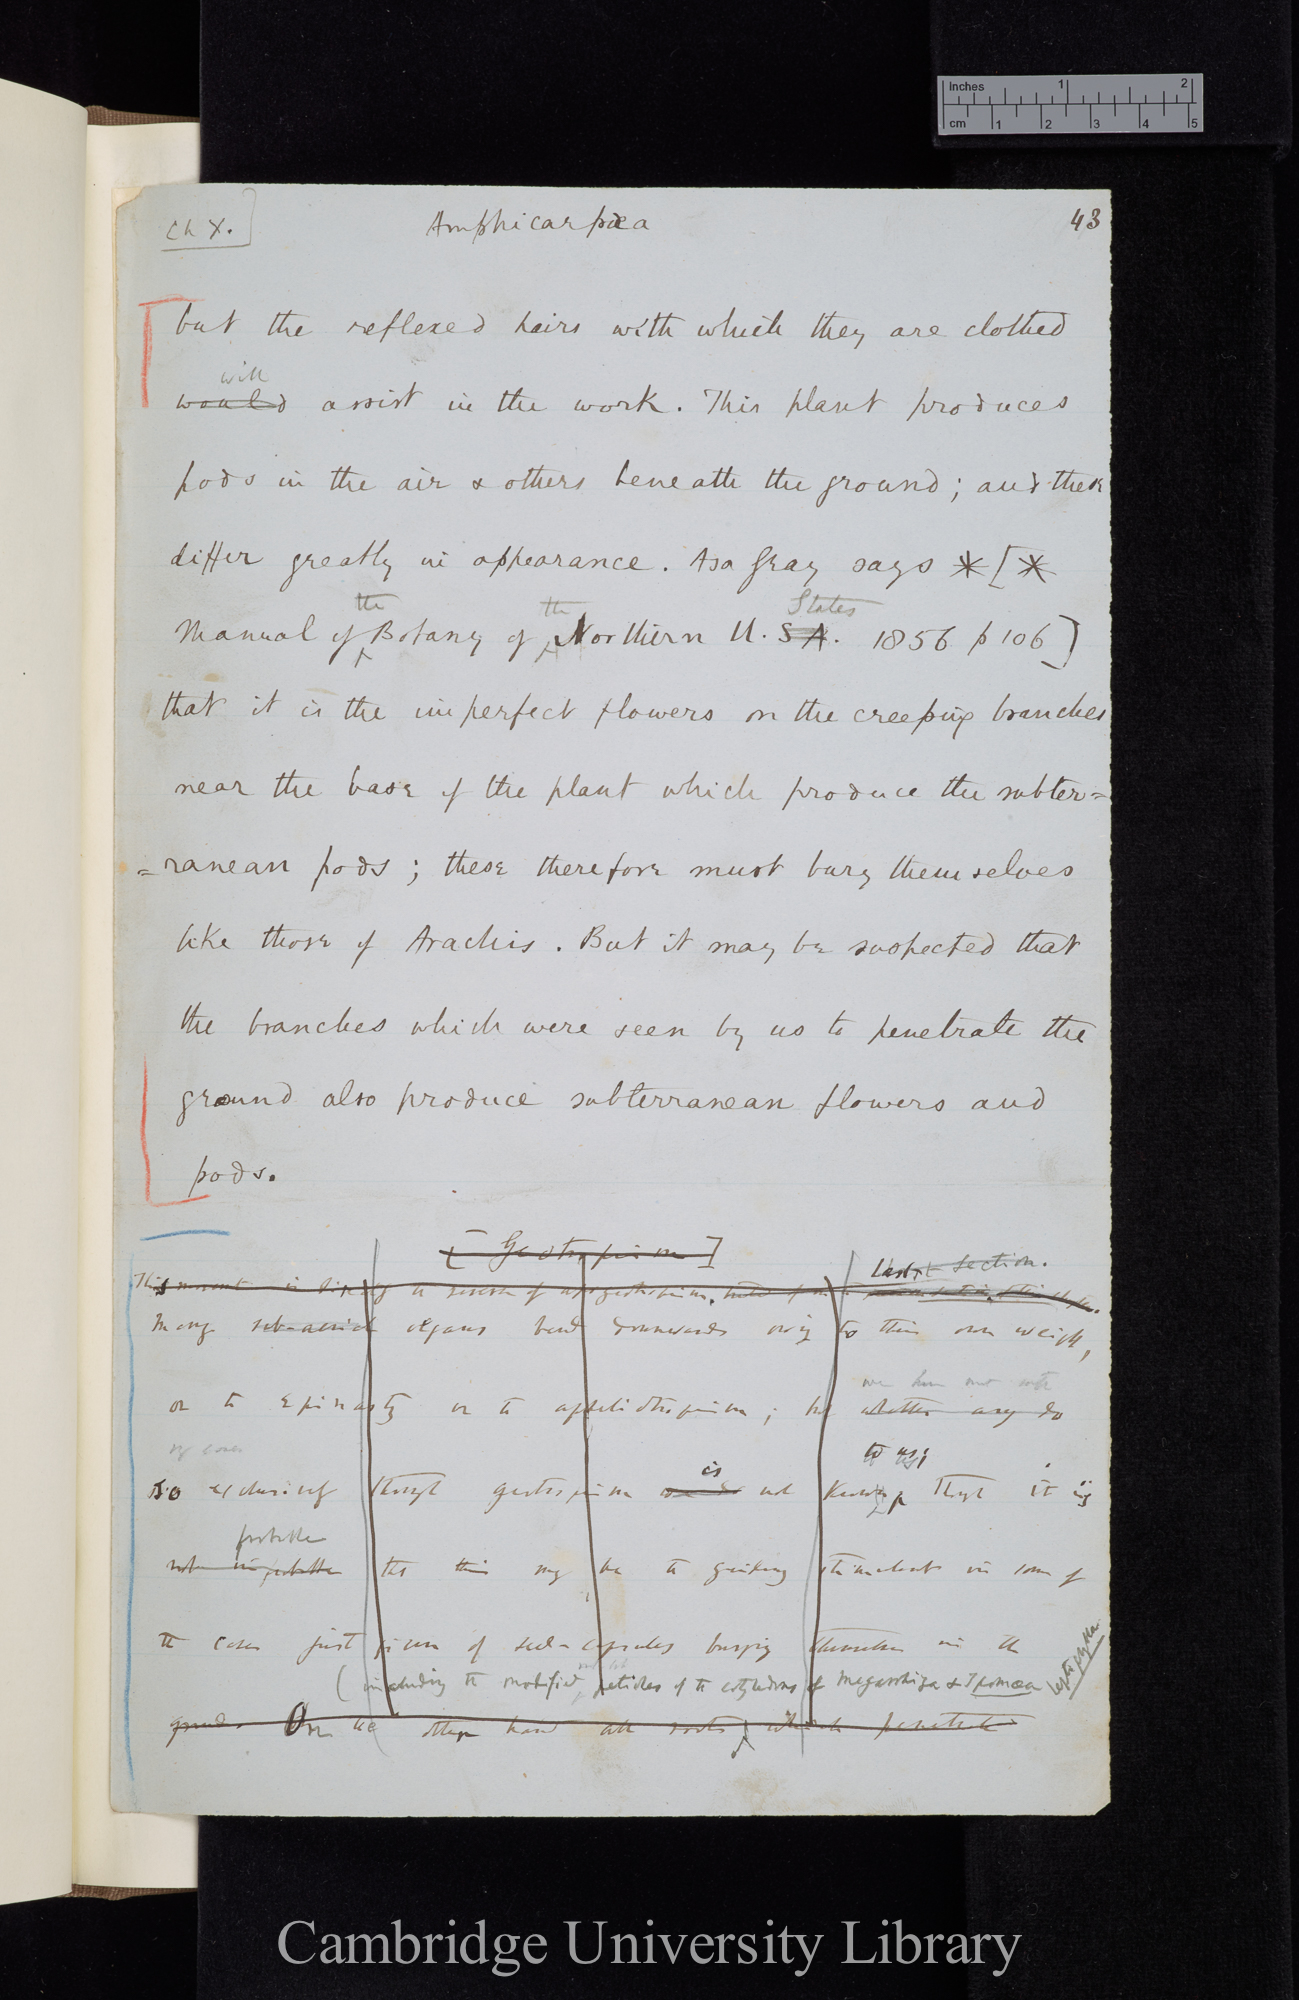 Inches 1 2
cm 1 2 3 4 5
Ch X. Amphicarpæa 43
but the reflexed hairs with which they are clothed
will
would assist in the work. This plant produces
pods in the air & others beneath the ground; and these
differ greatly in appearance. Asa Gray says * [*
the the States
Manual of Botany of Northern U. S A. 1856 p 106]
that it is the imperfect flowers on the creeping branches
near the base of the plant which produce the subter=
=ranean pods; these therefore must bury themselves
like those of Arachis. But it may be suspected that
the branches which were seen by us to penetrate the
ground also produce subterranean flowers and
pods.
[Geotropism]
Last section.
This movement is directly the reverse of apogeotropism.
Many sub-aerial organs bend downwards owing to their own weight,
we have not
or to epinasty or to apheliotropism; but whether any do
is to us;
so exclusively through geotropism not known though it is
probable
not improbable that this may be the guiding stimulus in some of
the cases just given of seed-capsules burying themselves in the
(including the modified petioles of the cotyledons of Megarrhiza & Ipomœa leptophylla
ground. On the other hand all roots, which penetrate
Cambridge University Library